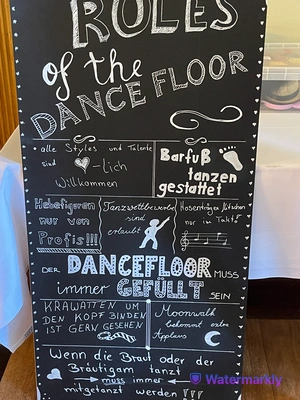 RULES
of the
DANCE FLOOR
• alle Styles und Talente
sind ♥-lich
Willkommen
Barfuß
tanzen
gestattet
Hebefiguren
nur von
Profis!!!
Tanzwettbewerbe
sind
erlaubt
Hosenträger flitschen
nur im Takt!
DER DANCEFLOOR MUSS
immer GEFÜLLT SEIN
KRAWATTEN UM
DEN KOPF BINDEN
IST GERN GESEHEN
Moonwalk
bekommt extra
Applaus
Wenn die Braut oder der
Bräutigam tanzt
muss immer
mitgetanzt werden!!!
Watermarkly